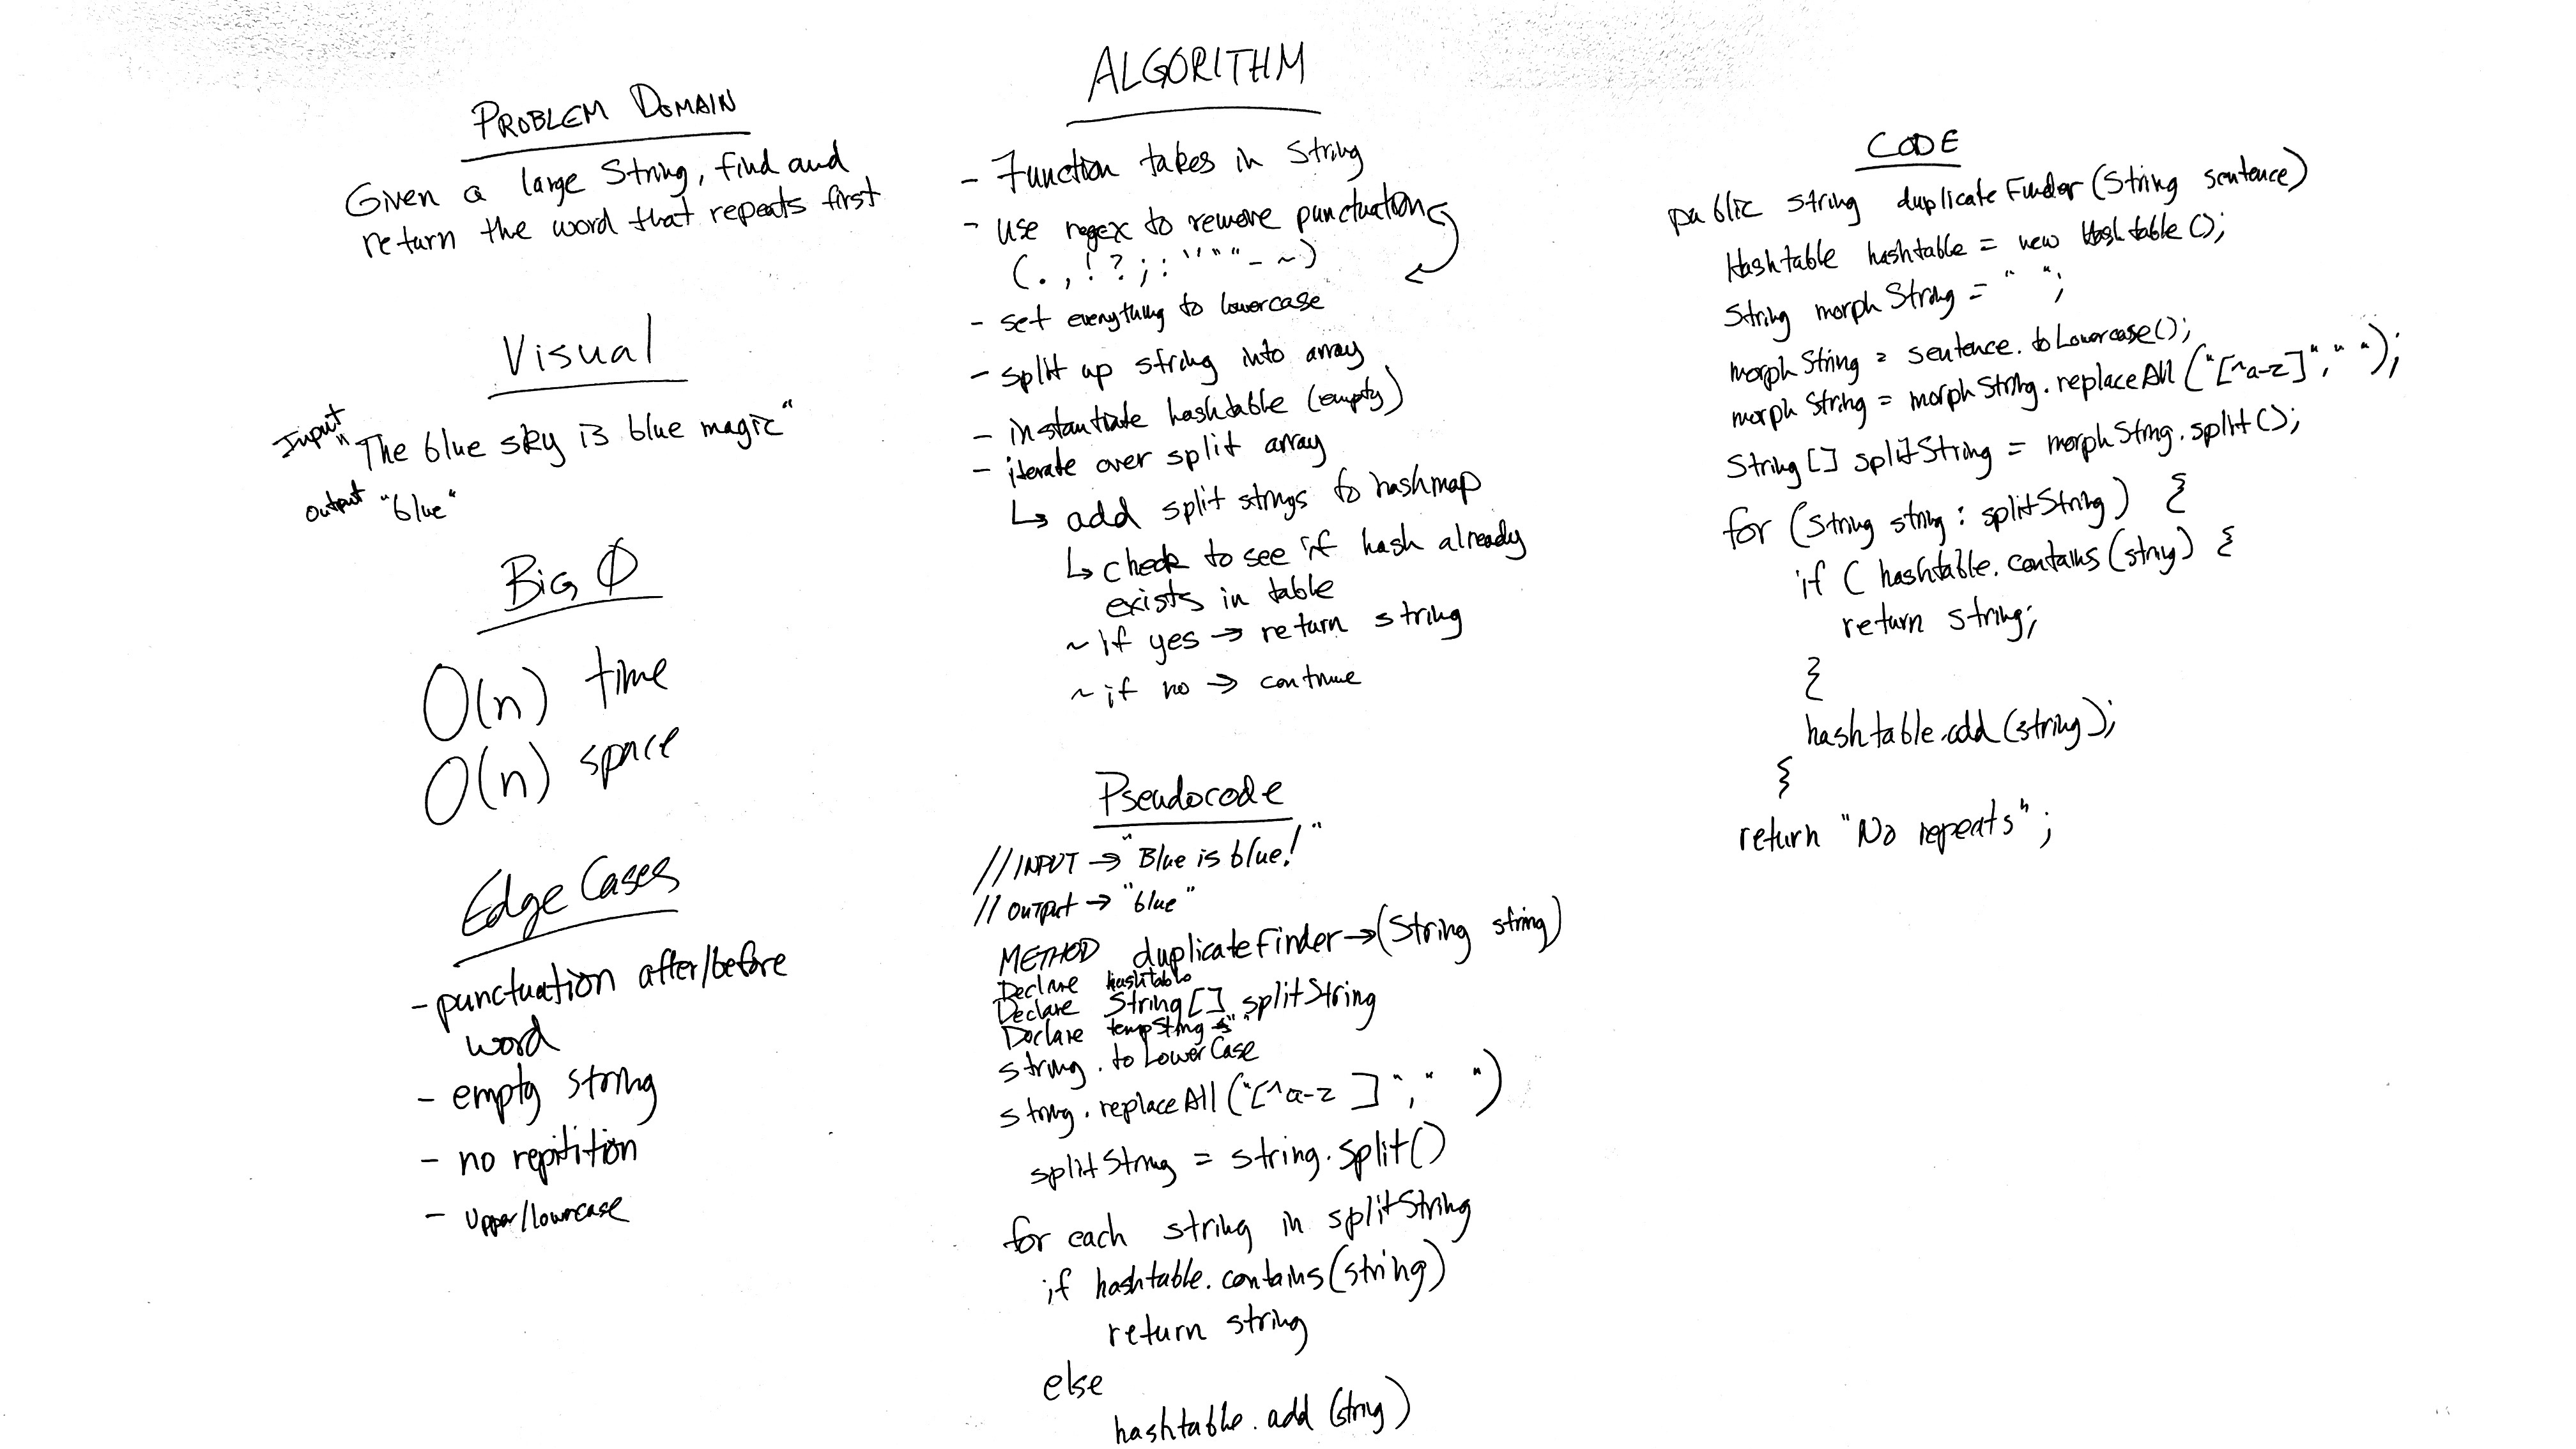 PROBLEM DOMAIN
Given a large String, find and
return the word that repeats first
Visual
Input "The blue sky is blue magic"
output "blue"
Big O
O(n) time
O(n) space
Edge Cases
- punctuation after/before
word
- empty string
- no repitition
- Upper/lowercase
ALGORITHM
- Function takes in String
- use regex to remove punctuation
(. , ! ? ; : ' ' " " - ~)
- set everything to lowercase
- split up string into array
- instantiate hashtable (empty)
- iterate over split array
↳ add split strings to hashmap
↳ check to see if hash already
exists in table
~ if yes → return string
~ if no → continue
Pseudocode
// INPUT → "Blue is blue!"
// OUTPUT → "blue"
METHOD duplicateFinder → (String string)
Declare hashtable
Declare String[] splitString
Declare tempString
string.toLowerCase
string.replaceAll("[^a-z ]", " ")
splitString = string.split()
for each string in splitString
if hashtable.contains(string)
return string
else
hashtable.add(string)
CODE
public string duplicateFinder(String sentence)
Hashtable hashtable = new Hashtable();
String morphString = " ";
morphString = sentence.toLowercase();
morphString = morphString.replaceAll("[^a-z]", " ");
String[] splitString = morphString.split();
for (String string : splitString) {
if ( hashtable.contains(string) {
return string;
}
hashtable.add(string);
}
return "No repeats";